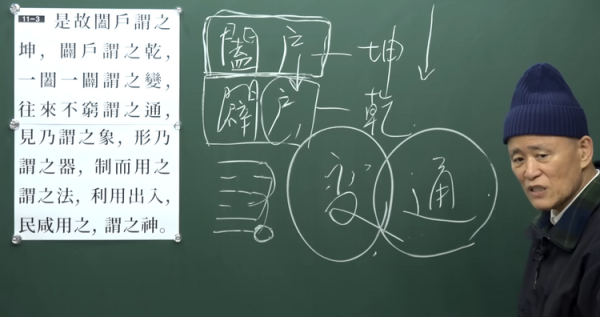 11-3
是故闔戶謂之
坤，闢戶謂之乾，
一闔一闢謂之變，
往來不窮謂之通，
見乃謂之象，形乃
謂之器，制而用之
謂之法，利用出入，
民咸用之，謂之神。
闔戶—坤
闢戶—乾
变 通